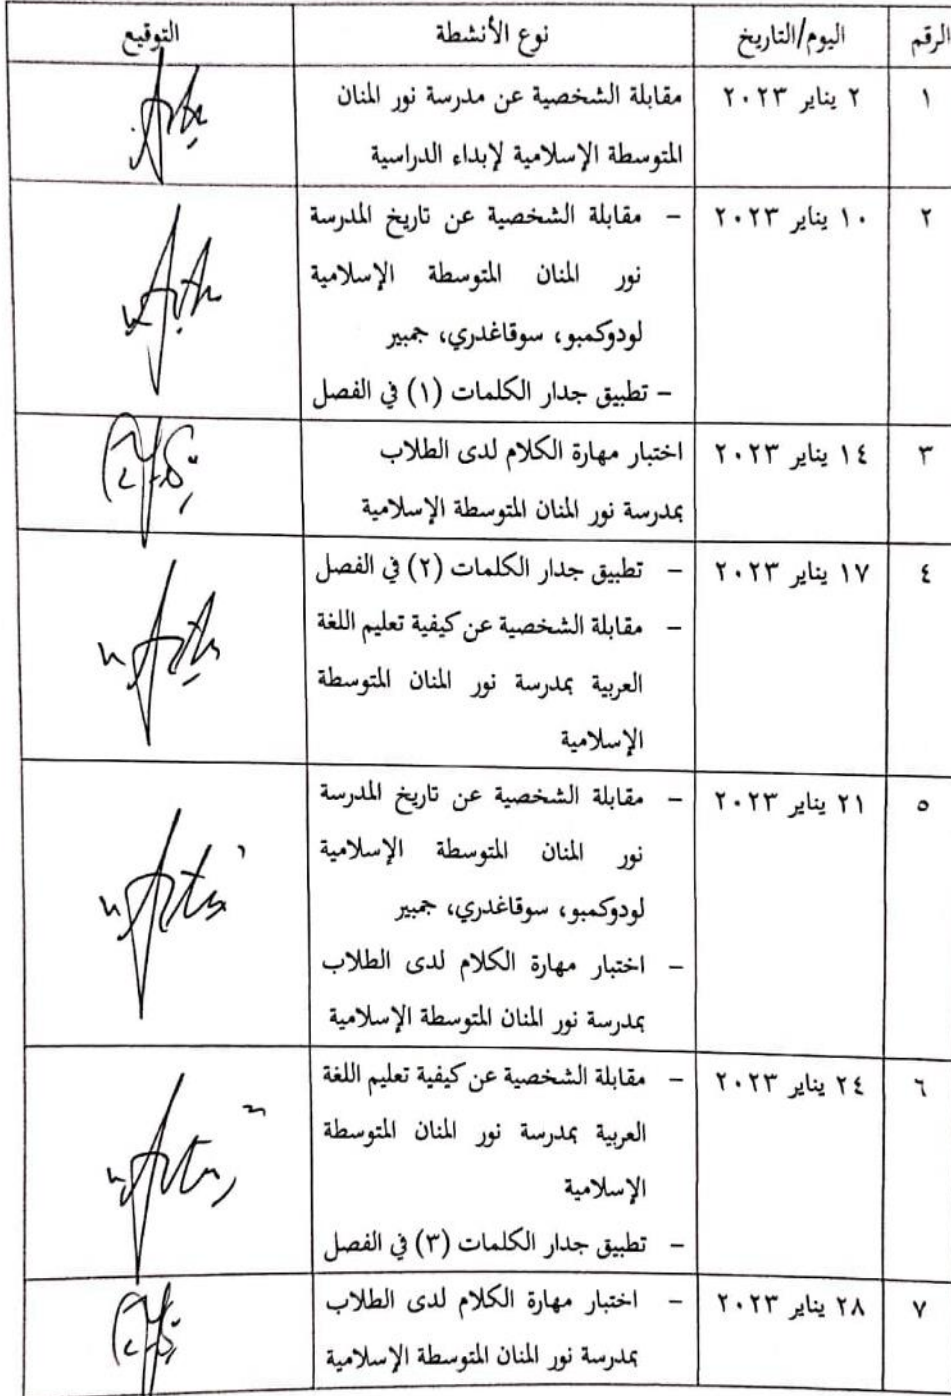 الرقم اليوم/التاريخ نوع الأنشطة التوقيع
١ ٢ يناير ٢٠٢٣ مقابلة الشخصية عن مدرسة نور المنان
المتوسطة الإسلامية لإبداء الدراسية
٢ ١٠ يناير ٢٠٢٣ – مقابلة الشخصية عن تاريخ المدرسة
نور المنان المتوسطة الإسلامية
لودوكمبو، سوقاغدري، جمبير
– تطبيق جدار الكلمات (١) في الفصل
٣ ١٤ يناير ٢٠٢٣ اختبار مهارة الكلام لدى الطلاب
بمدرسة نور المنان المتوسطة الإسلامية
٤ ١٧ يناير ٢٠٢٣ – تطبيق جدار الكلمات (٢) في الفصل
– مقابلة الشخصية عن كيفية تعليم اللغة
العربية بمدرسة نور المنان المتوسطة
الإسلامية
٥ ٢١ يناير ٢٠٢٣ – مقابلة الشخصية عن تاريخ المدرسة
نور المنان المتوسطة الإسلامية
لودوكمبو، سوقاغدري، جمبير
– اختبار مهارة الكلام لدى الطلاب
بمدرسة نور المنان المتوسطة الإسلامية
٦ ٢٤ يناير ٢٠٢٣ – مقابلة الشخصية عن كيفية تعليم اللغة
العربية بمدرسة نور المنان المتوسطة
الإسلامية
– تطبيق جدار الكلمات (٣) في الفصل
٧ ٢٨ يناير ٢٠٢٣ – اختبار مهارة الكلام لدى الطلاب
بمدرسة نور المنان المتوسطة الإسلامية